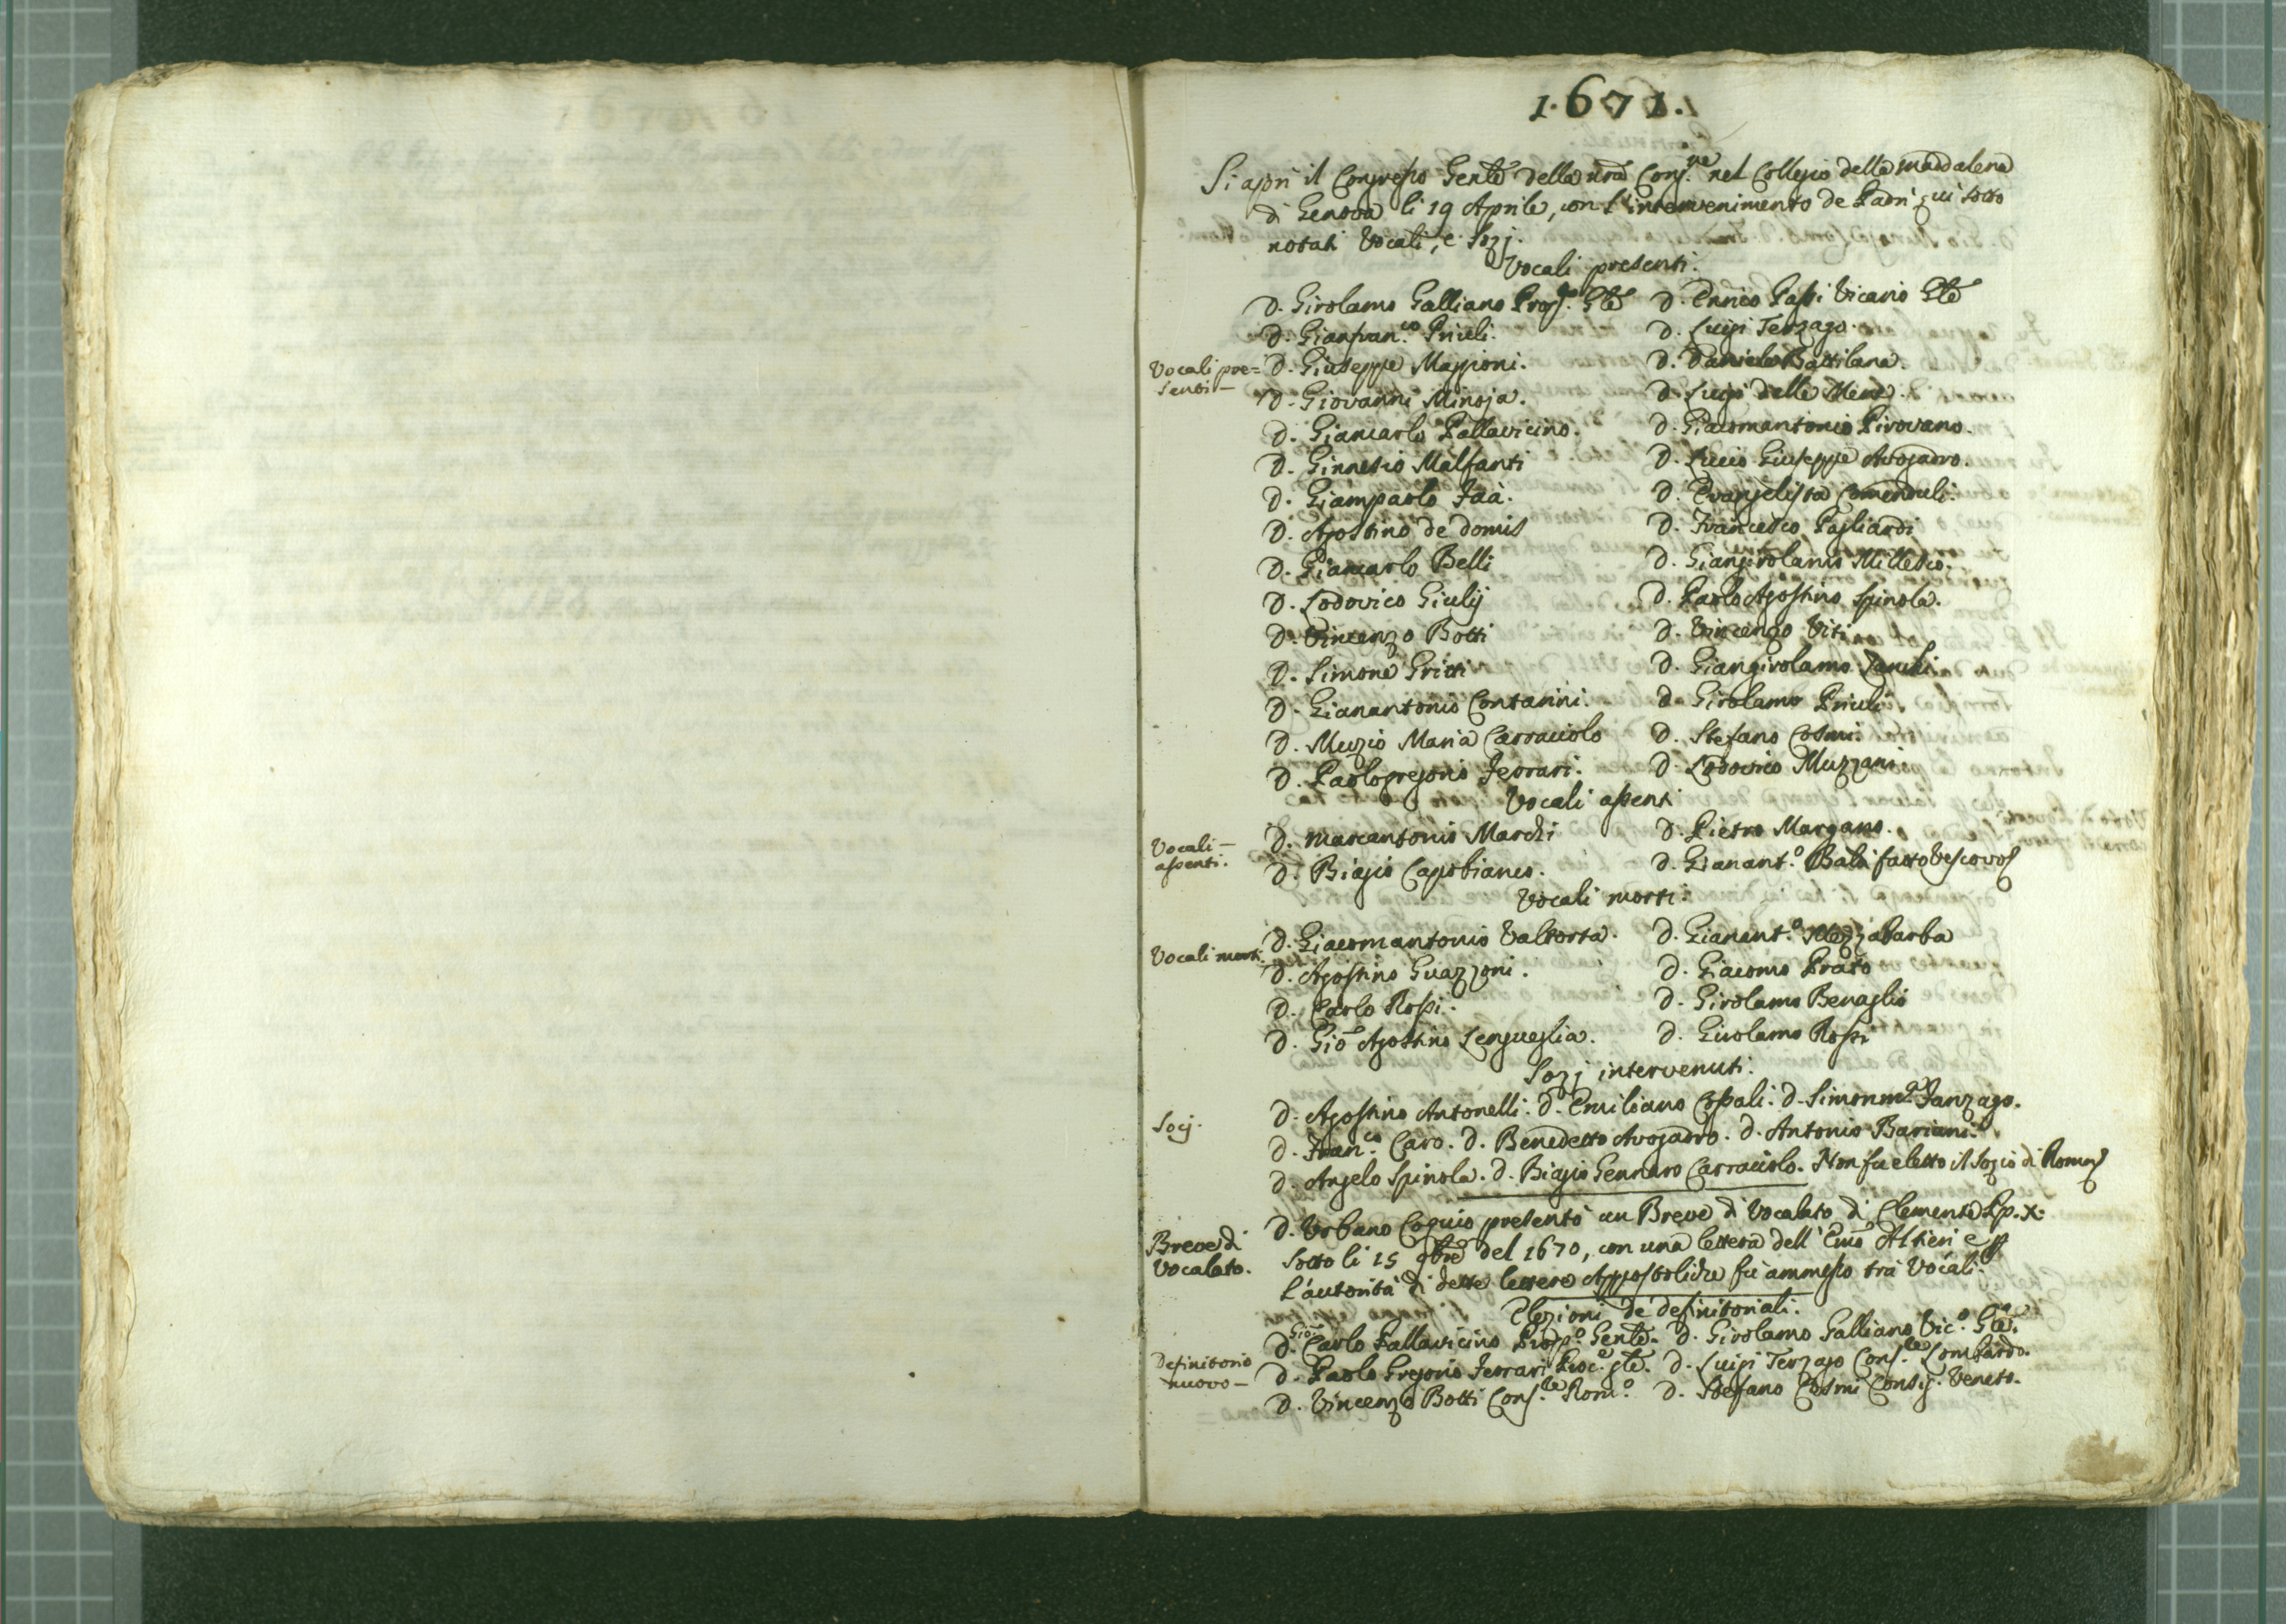 1671.
Si aprì il Congresso Genle della nrã Cong.ne nel Collegio della Maddalena
di Genova li 19 Aprile, con l'intervenimento de Padri qui sotto
notati Vocali, e Sozj.
Vocali presenti.
D. Girolamo Galliano Prop.to Gle D. Enrico Passi Vicario Gle
D. Gianfran.co Priuli. D. Luigi Terzago.
Vocali pre=
senti—
D. Giuseppe Maggioni. D. Daniele Battilana.
D. Giovanni Minoja. D. Luigi delle Mene.
D. Giancarlo Pallavicino. D. Giacomantonio Pirovano.
D. Ginnesio Malfanti D. Lucio Giuseppe Avogadro.
D. Giampaolo Jaà. D. Evangelista Comenduli.
D. Agostino de domis D. Francesco Pagliardi
D. Giancarlo Belli D. Giangirolamo Milesio.
D. Lodovico Giulij D. Paolo Agostino Spinola.
D. Vincenzo Botti D. Vincenzo Viti
D. Simone Gritti D. Giangirolamo Zanchi
D. Gianantonio Contarini. D. Girolamo Priuli
D. Muzio Maria Carraciolo D. Stefano Cosmi.
D. Paologregorio Ferrari. D. Lodovico Muzzani
Vocali assenti
Vocali—
assenti.
D. Marcantonio Marchi D. Pietro Margano.
D. Biagio Capobianco. D. Gianant.o Balbi fatto Vescovo
Vocali morti.
Vocali morti.
D. Giacomantonio Valtorta. D. Gianant.o Mezzabarba
D. Agostino Guazzoni. D. Giacomo Prato
D. Carlo Rossi. D. Girolamo Benaglio
D. Gio Agostino Lengueglia. D. Girolamo Rossi
Sozj intervenuti.
Socj.
D. Agostino Antonelli. D. Emiliano Cossali. D. Simonm.a Fanzago.
D. Fran.co Caro. D. Benedetto Avogadro. D. Antonio Bariani.
D. Angelo Spinola. D. Biagio Gennaro Carraciolo. Non fu eletto il Sozio di Roma
Breve di
Vocalato.
D. Urbano Coquio presentò un Breve di Vocalato di Clemente Pp. X.
sotto li 15 9bre del 1670, con una lettera dell' Emo Altieri e p
l'autorità di dette lettere Appostoliche fù ammesso trà Vocali.
Elezioni de definitoriali.
Definitorio
nuovo—
D. Gio Carlo Pallavicino Prop.o Genle. D. Girolamo Galliano Vic.o Gle.
D. Paolo Gregorio Ferrari Proc.e gle. D. Luigi Terzago Cons.le Lombardo.
D. Vincenzo Botti Cons.le Rom.o D. Stefano Cosmi Consig. Veneto.